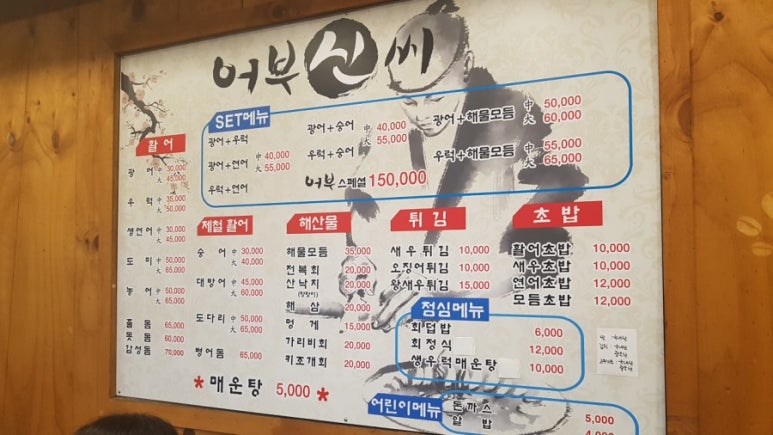 어부신씨
SET메뉴
광어+우럭
광어+연어 中 40,000
大 55,000
우럭+연어
광어+숭어 中 40,000
우럭+숭어 大 55,000
어부스페셜 150,000
광어+해물모듬 中 50,000
大 60,000
우럭+해물모듬 中 55,000
大 65,000
활어
광어 中 30,000
大 45,000
우럭 中 35,000
大 50,000
생연어 中 30,000
大 40,000
도미 中 50,000
大 65,000
농어 中 50,000
大 65,000
줄돔 65,000
돗돔 60,000
감성돔 70,000
제철활어
숭어 中 30,000
大 40,000
대방어 中 45,000
大 60,000
도다리 中 50,000
大 65,000
병어돔 65,000
해산물
해물모듬 35,000
전복회 20,000
산낙지 20,000
해삼 20,000
멍게 15,000
가리비회 20,000
키조개회 20,000
튀김
새우튀김 10,000
오징어튀김 10,000
왕새우튀김 15,000
초밥
활어초밥 10,000
새우초밥 10,000
연어초밥 12,000
모듬초밥 12,000
점심메뉴
회덮밥 6,000
회정식 12,000
생우럭매운탕 10,000
*매운탕 5,000*
어린이메뉴
돈까스 5,000
알밥 4,000